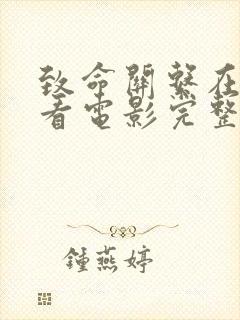 致命關係在
看電影完整
鍾燕婷